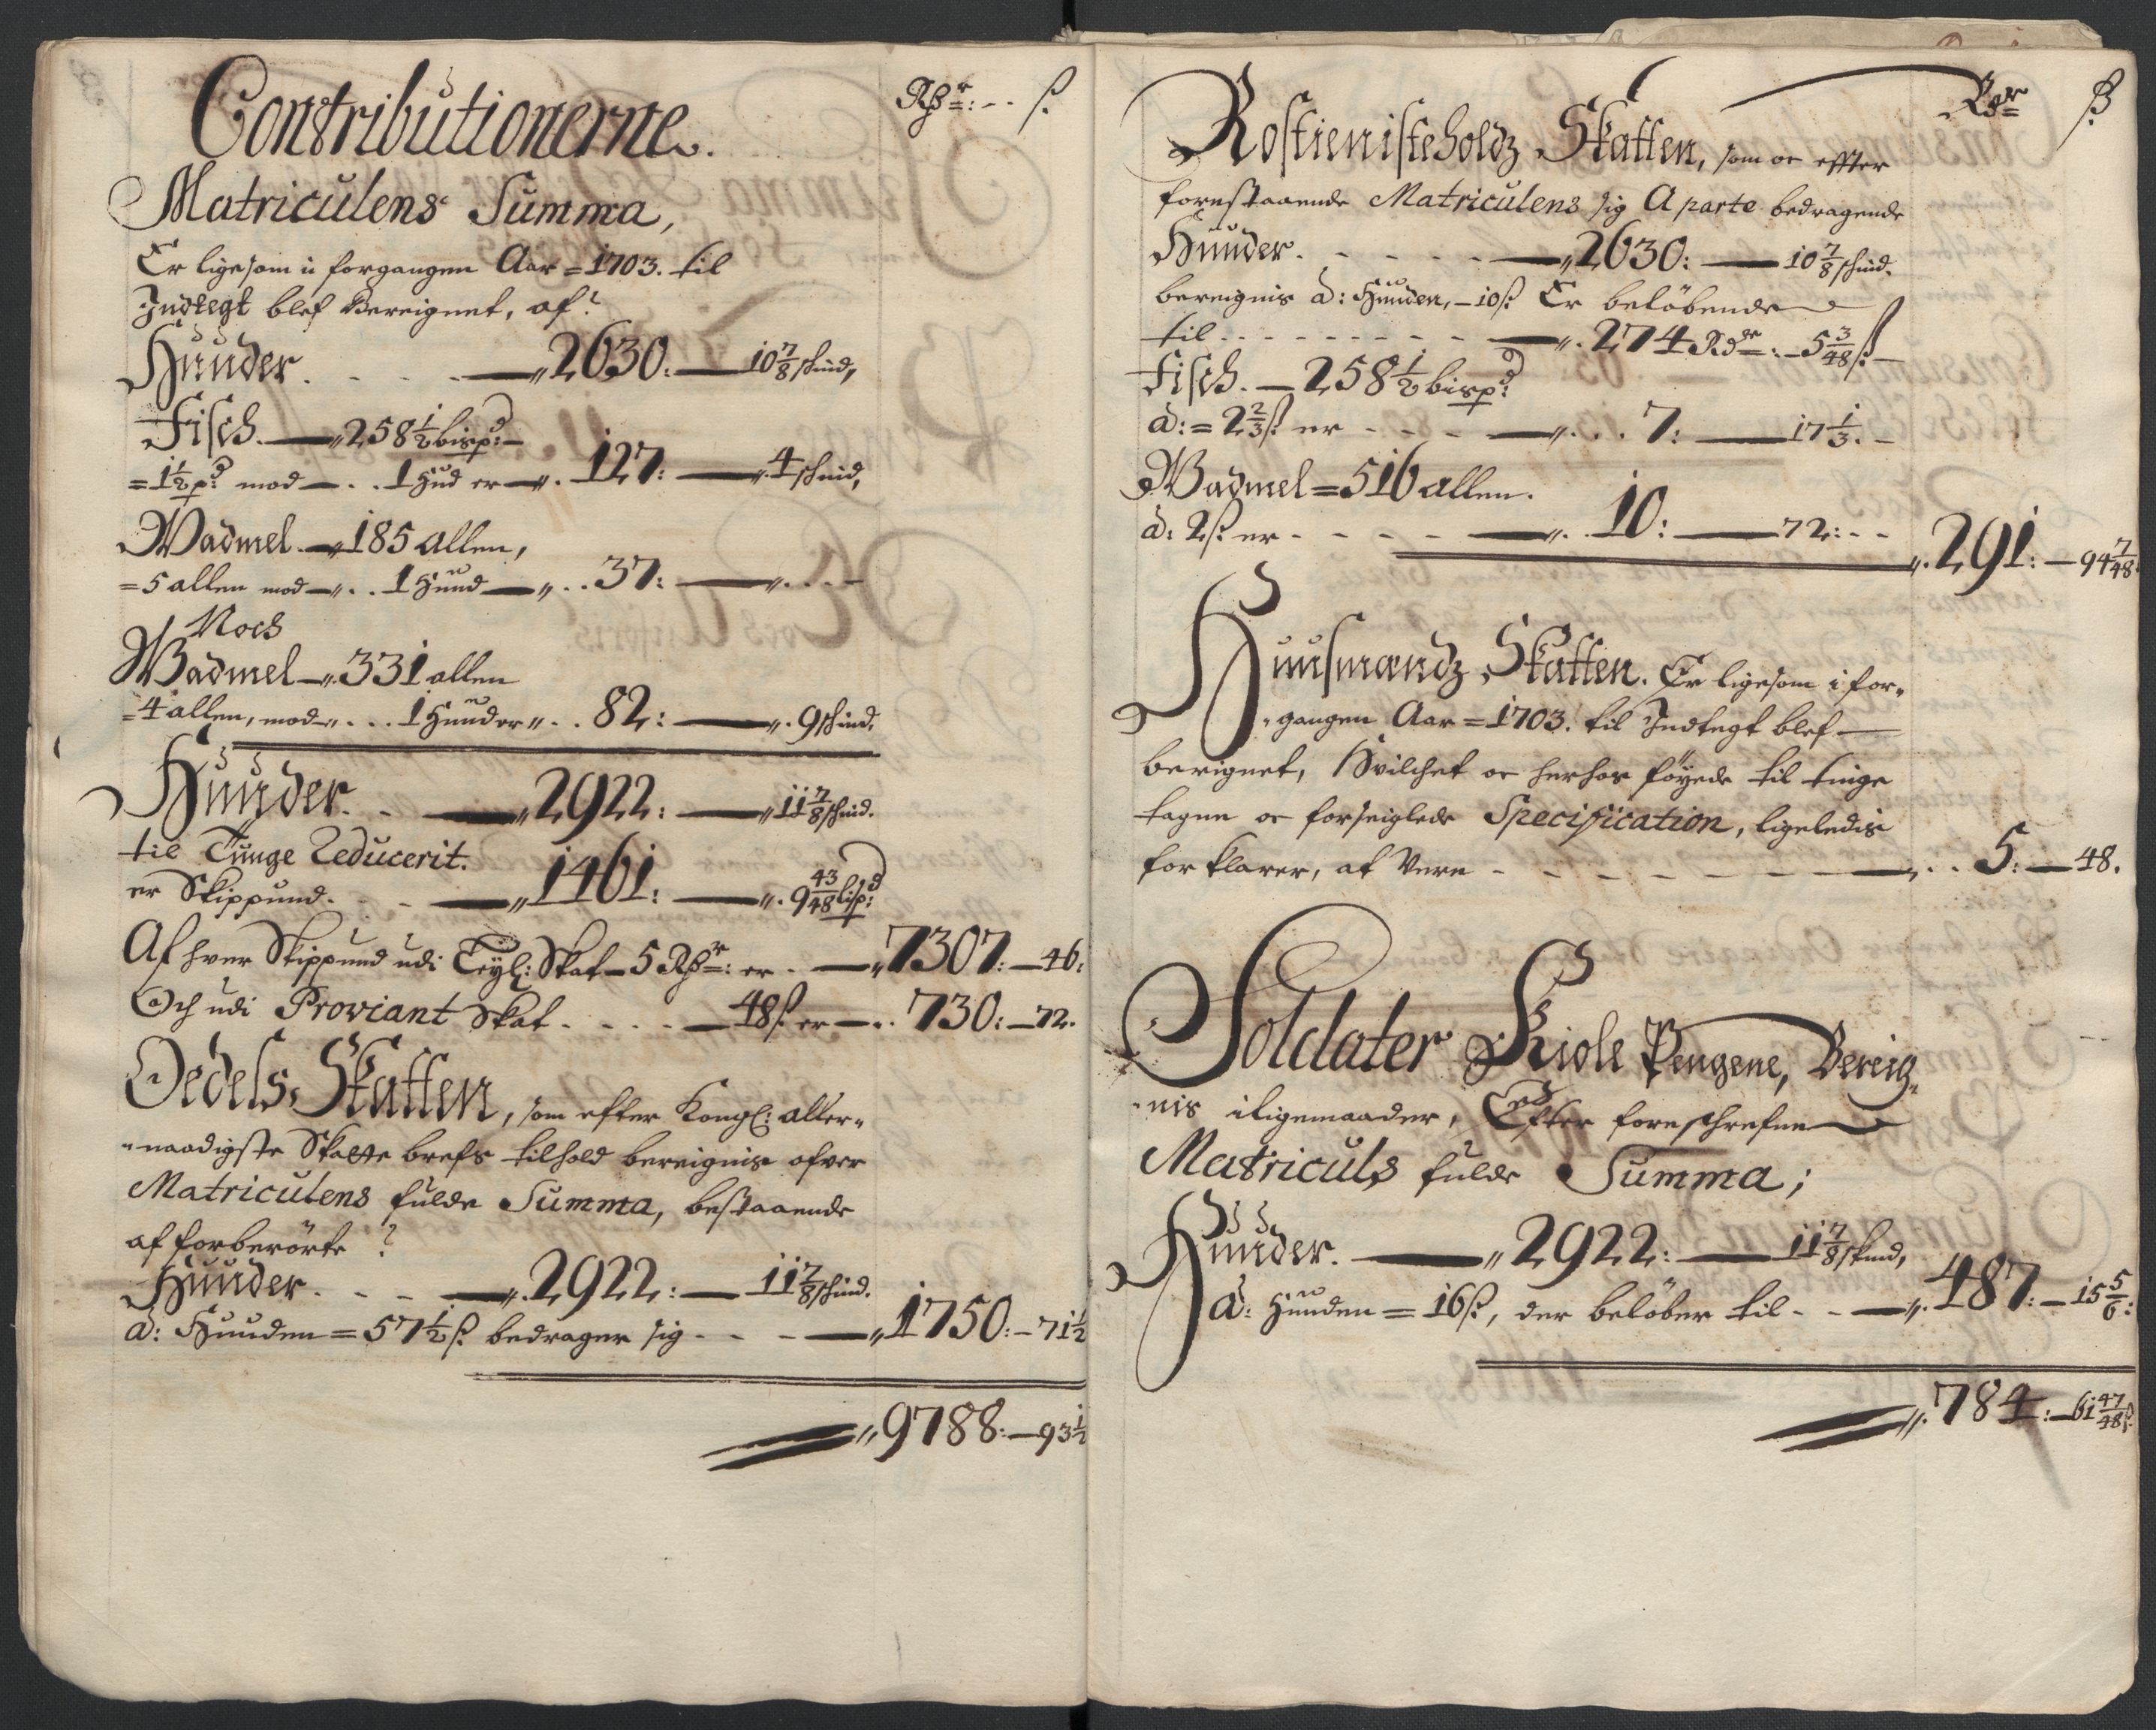 Contributionerne.
Rdr: ß.
Matriculens Summa,
Er ligesom i forgangen Aar = 1703. til
Indtegt blef Bereignet, af
Huuder. - - - 2630: 10 7/8 schind,
Fisch. 258 1/2 bispd:
= 1 1/2 pd: mod . . 1 Hud er . 127: 4 schind,
Wadmel. 185 allen,
= 5 allen mod . . 1 Huud . . 37: . . .
Noch
Wadmel 331 allen
= 4 allen, mod . . . 1 Huud er . . 82: . 9 schind.
Huuder. - 2922: 11 7/8 schind.
til Tunge Reducerit.
er Skippund. - - 1461: . 9 43/48 lispd:
Af hver Skippund udi Leyl: Skat 5 Rdr: er . 7307: 46:
Och udi Proviant Skat . . . . 48 ß. er . . 730: 72.
Oedels Skatten, som efter Kongl: aller-
naadigste Skatte brefs tilhold bereignis ofver
Matriculens fulde Summa, bestaaende
af forberörte
Huuder. - - 2922: 11 7/8 schind.
à: Huuden = 57 1/2 ß. bedrager sig - - - 1750: 71 1/2
9788: 93 1/2
Rdr ß.
Rostienisteholdz Skatten, som oc effter
forestaaende Matriculens sig Aparte bedragende
Huuder. - - - - 2630: 10 7/8 schind.
bereignis à: Huuden, 10 ß. Er belöbende
til - - - - - - - - . 274 Rdr: 5 3/48 ß.
Fisch. 258 1/2 bispd:
à: = 2 2/3 ß. er - - - - . . . 7: 17 1/3.
Wadmel = 516 allen.
à: 2 ß. er - - - - . . 10: 72: - -
291: 94 7/48.
Huusmandz Skatten. Er ligesom i for-
gangen Aar = 1703. til Indtegt blef
berignet, Hvilchet oc herhos föyede til tinge
tagne oc forseiglede Specification, ligeledis
forklarer, at Vere - - - - - - - . . 5: 48.
Soldater Kiole Pengene, Bereig-
nis iligemaader, Efter foreschrefne
Matriculs fulde Summa;
Huuder. 2922: 11 7/8 skind,
à: Huuden = 16 ß., der belöber til - - 487: 15 5/6:
784: 61 47/48 ß.